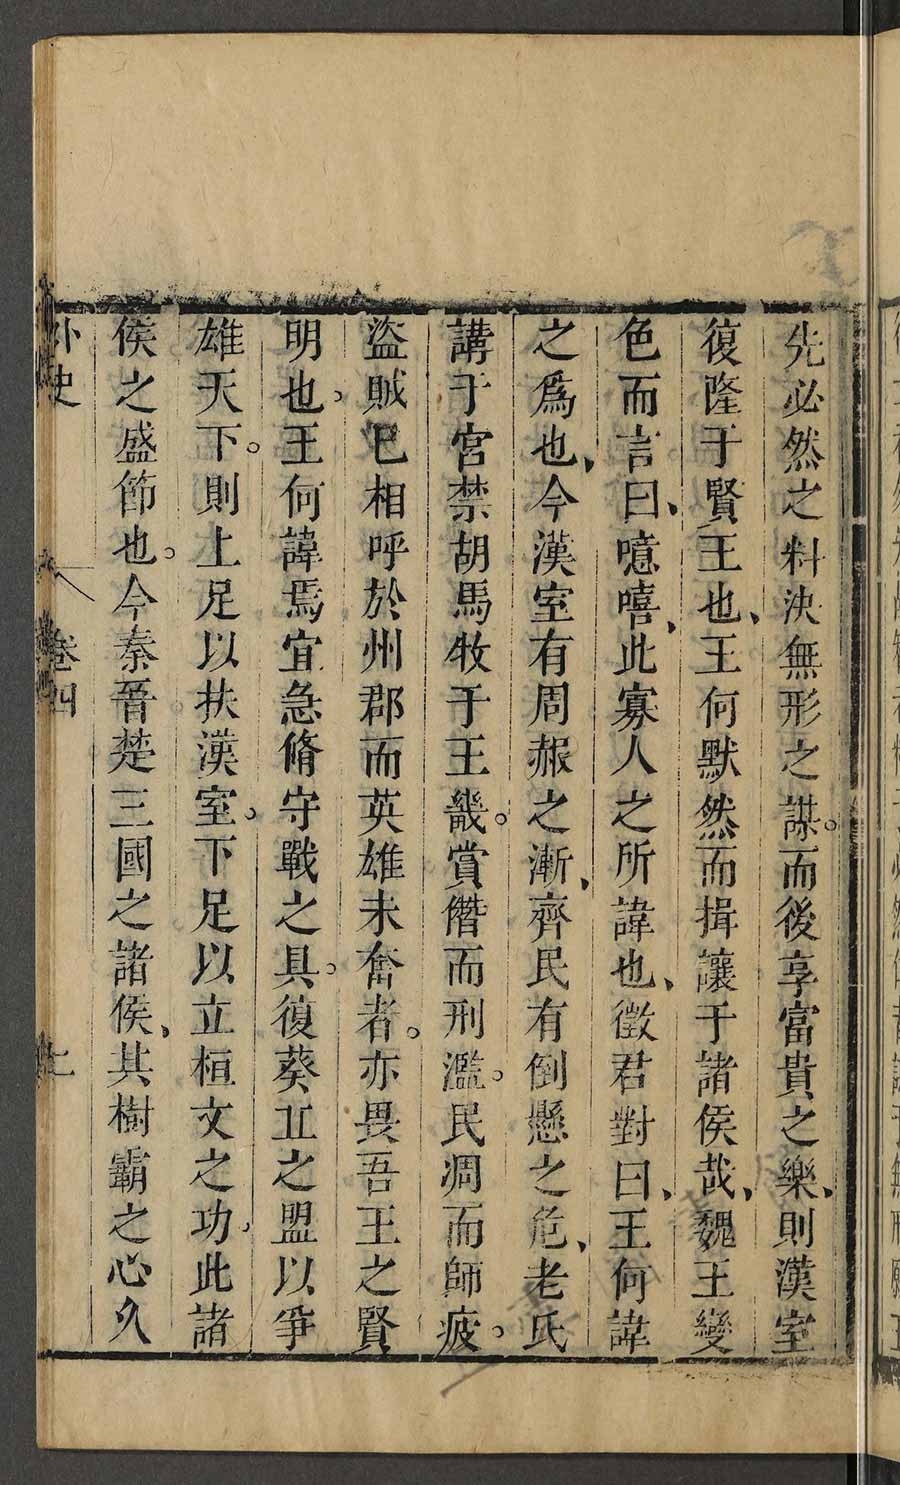 先必然之料決無形之謀。而後享富貴之樂、則漢室
復隆于賢王也、王何默然而揖讓于諸侯哉、魏王變
色而言曰、噫嘻、此寡人之所諱也、徵君對曰、王何諱
之爲也、今漢室有周赧之漸、齊民有倒懸之危、老氏
講于宮禁胡馬牧于王畿。賞僭而刑濫。民凋而師疲。
盜賊已相呼於州郡而英雄未奮者。亦畏吾王之賢
明也。王何諱焉宜急脩守戰之具。復葵丘之盟以爭
雄天下。則上足以扶漢室。下足以立桓文之功、此諸
侯之盛節也。今秦晉楚三國之諸侯、其樹霸之心久
外史 卷四 七